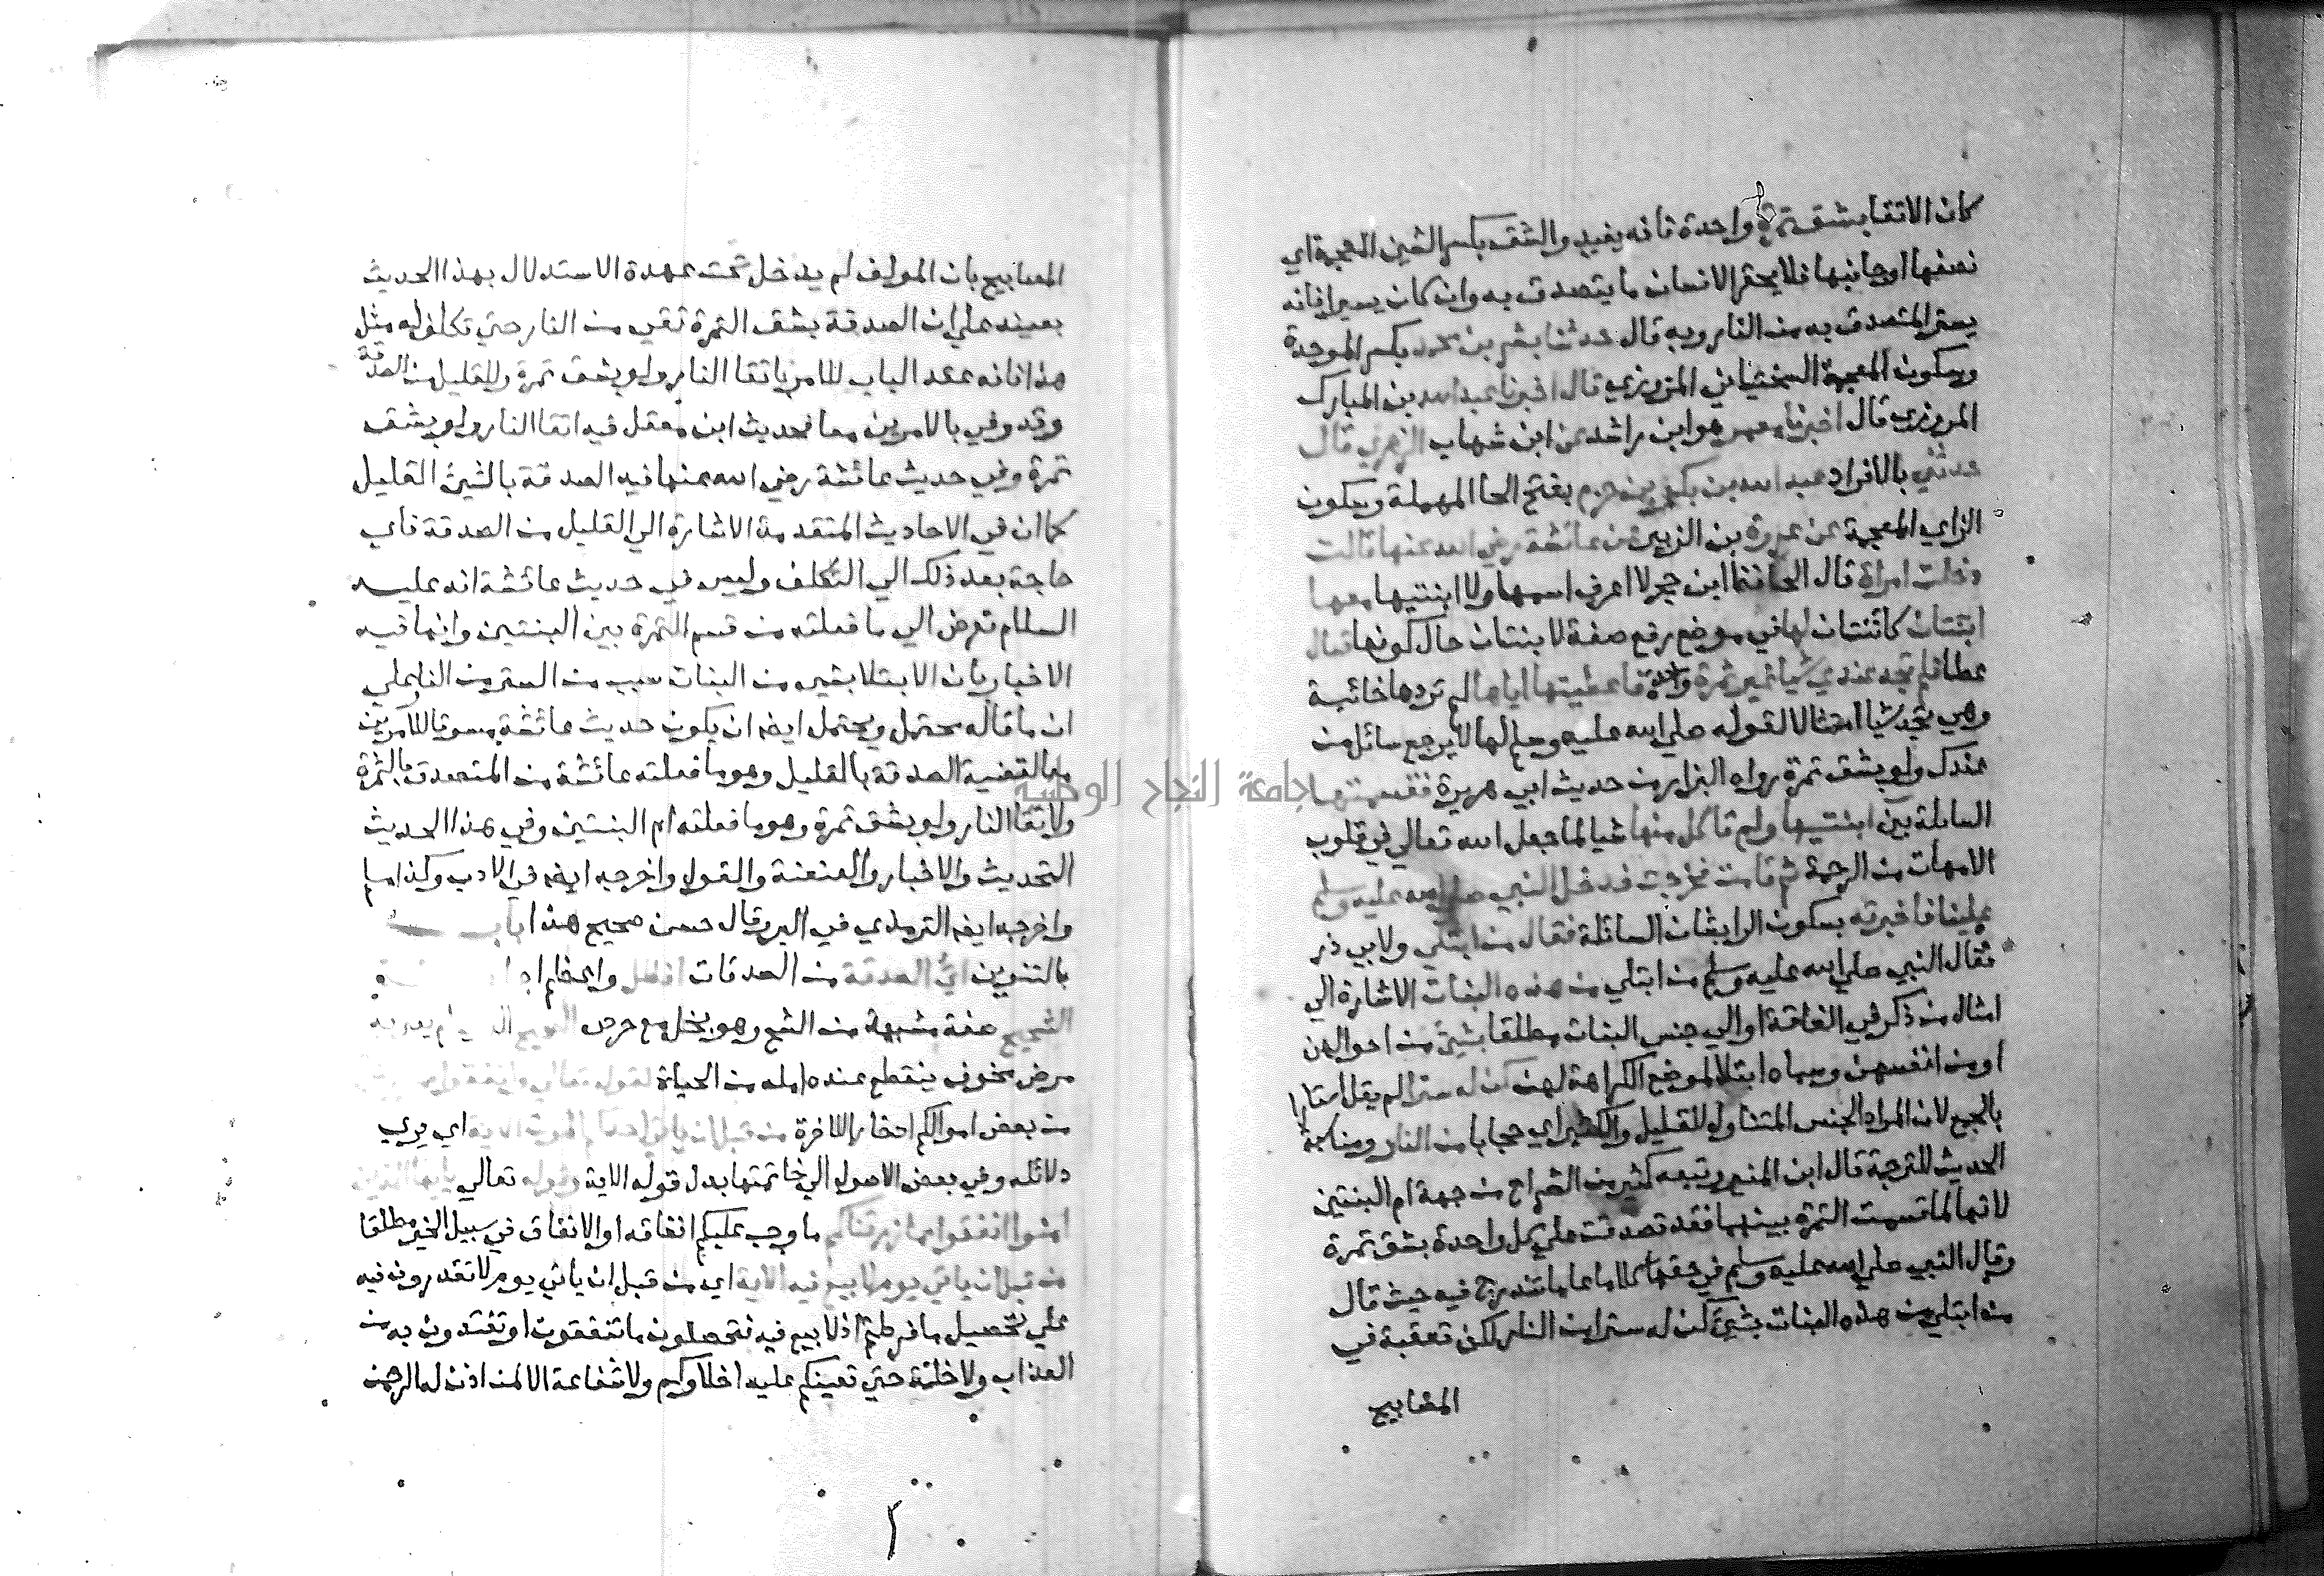 كان الاتقا بشق تمرة واحدة فانه يفيد والشق بكسر الشين المعجمة اي
نصفها او جانبها فلا يحقر الانسان ما يتصدق به وان كان يسيرا فانه
يستر المتصدق به من النار وبه قال حدثنا بشر بن محمد بكسر الموحدة
وسكون المعجمة السختياني المروزي قال اخبرنا عبد الله بن المبارك
المروزي قال اخبرنا معمر هو ابن راشد عن ابن شهاب الزهري قال
حدثني بالافراد عبد الله بن بكر بن حزم بفتح الحا المهملة وسكون
الزاي المعجمة عن عروة بن الزبير عن عائشة رضي الله عنها قالت
دخلت امراة قال الحافظ ابن حجر لا اعرف اسمها ولا ابنتيها معها
ابنتان كائنتان لها في موضع رفع صفة لابنتان حال كونها تسال
عطا فلم تجد عندي شيا غير تمرة واحدة فاعطيتها اياها لم تردها خائبة
وهي تجد شيا امتثالا لقوله صلي الله عليه وسلم لها لا يرجع سائل من
عندك ولو بشق تمرة رواه البزار من حديث ابي هريرة فقسمتها
السائلة بين ابنتيها ولم تاكل منها شيا لما جعل الله تعالي في قلوب
الامهات من الرحمة ثم قامت فخرجت فدخل النبي صلي الله عليه وسلم
علينا فاخبرته بسكون الرا بشان السائلة فقال من ابتلي ولابي ذر
فقال النبي صلي الله عليه وسلم من ابتلي من هذه البنات الاشارة الي
امثال من ذكر في الفاقة او الي جنس البنات مطلقا بشيئ من احوالهن
او من انفسهن وسماه ابتلا لموضع الكراهة لهن كن له سترا لم يقل استارا
بالجمع لان المراد الجنس المتناول للقليل والكثير اي حجابا من النار ومناسبة
الحديث للترجمة قال ابن المنير وتبعه كثير من الشراح من جهة ام البنتين
لانها لما قسمت التمرة بينهما فقد تصدقت علي كل واحدة بشق تمرة
وقال النبي صلي الله عليه وسلم في حقها كلاما عاما تندرج فيه حيث قال
من ابتلي من هذه البنات بشيئ كن له سترا من النار لكن تعقبة في
المصابيح
المصابيح بان المولف لم يدخل تحت عهدة الاستدلال بهذا الحديث
بعينه علي ان الصدقة بشق التمرة تقي من النار حتي تكلف له مثل
هذا فانه عقد الباب للامر باتقا النار ولو بشق تمرة وللقليل من الصدقة
وقد وفي بالامرين معا فحديث ابن معقل فيه اتقا النار ولو بشق
تمرة وفي حديث عائشة رضي الله عنها فيه الصدقة بالشيئ القليل
كما ان في الاحاديث المتقدمة الاشارة الي القليل من الصدقة فاي
حاجة بعد ذلك الي التكلف وليس في حديث عائشة انه عليه
السلام تعرض الي ما فعلته من قسم التمرة بين البنتين وانما فيه
الاخبار بان الابتلا بشيئ من البنات سبب من الستر من النار علي
ان ما قاله محتمل ويحتمل ايضا ان يكون حديث عائشة مسوقا للامرين
معا لقضية الصدقة بالقليل وهو ما فعلته عائشة من المتصدق بالتمرة
ولاتقا النار ولو بشق تمرة وهو ما فعلته ام البنتين وفي هذا الحديث
التحديث والاخبار والعنعنة والقول واخرجه ايضا في الادب وكذا مسلم
واخرجه ايضا الترمذي في البر وقال حسن صحيح هذا باب
بالتنوين اي الصدقة من الصدقات افضل واعظم
الشحيح صفة مشبهة من الشح وهو بخل مع حرص
مرض مخوف ينقطع عنده امله من الحياة لقوله تعالي وانفقوا
من بعض اموالكم ادخارا للاخرة من قبل ان ياتي احدكم الموت الاية اي يري
دلائله وفي بعض الاصول الي خاتمتها بدل قوله الاية وقوله تعالي يا ايها الذين
امنوا انفقوا مما رزقناكم ما وجب عليكم انفاقه او الانفاق في سبيل الخير مطلقا
من قبل ان ياتي يوم لا بيع فيه الاية اي من قبل ان ياتي يوم لا تقدرون فيه
علي تحصيل ما فرطتم اذ لا بيع فيه فتحصلون ما تنفقون او تفتدون به من
العذاب ولا خلة حتي تعينكم عليه اخلاوكم ولا شفاعة الا لمن اذن له الرحمن
جامعة النجاح الوطنية